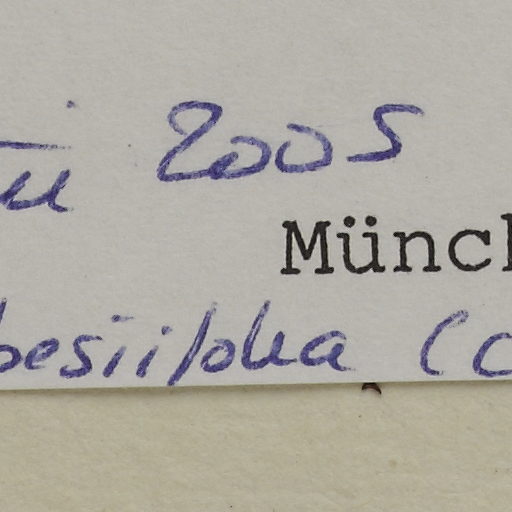 2005
Münch
besiifolia (c